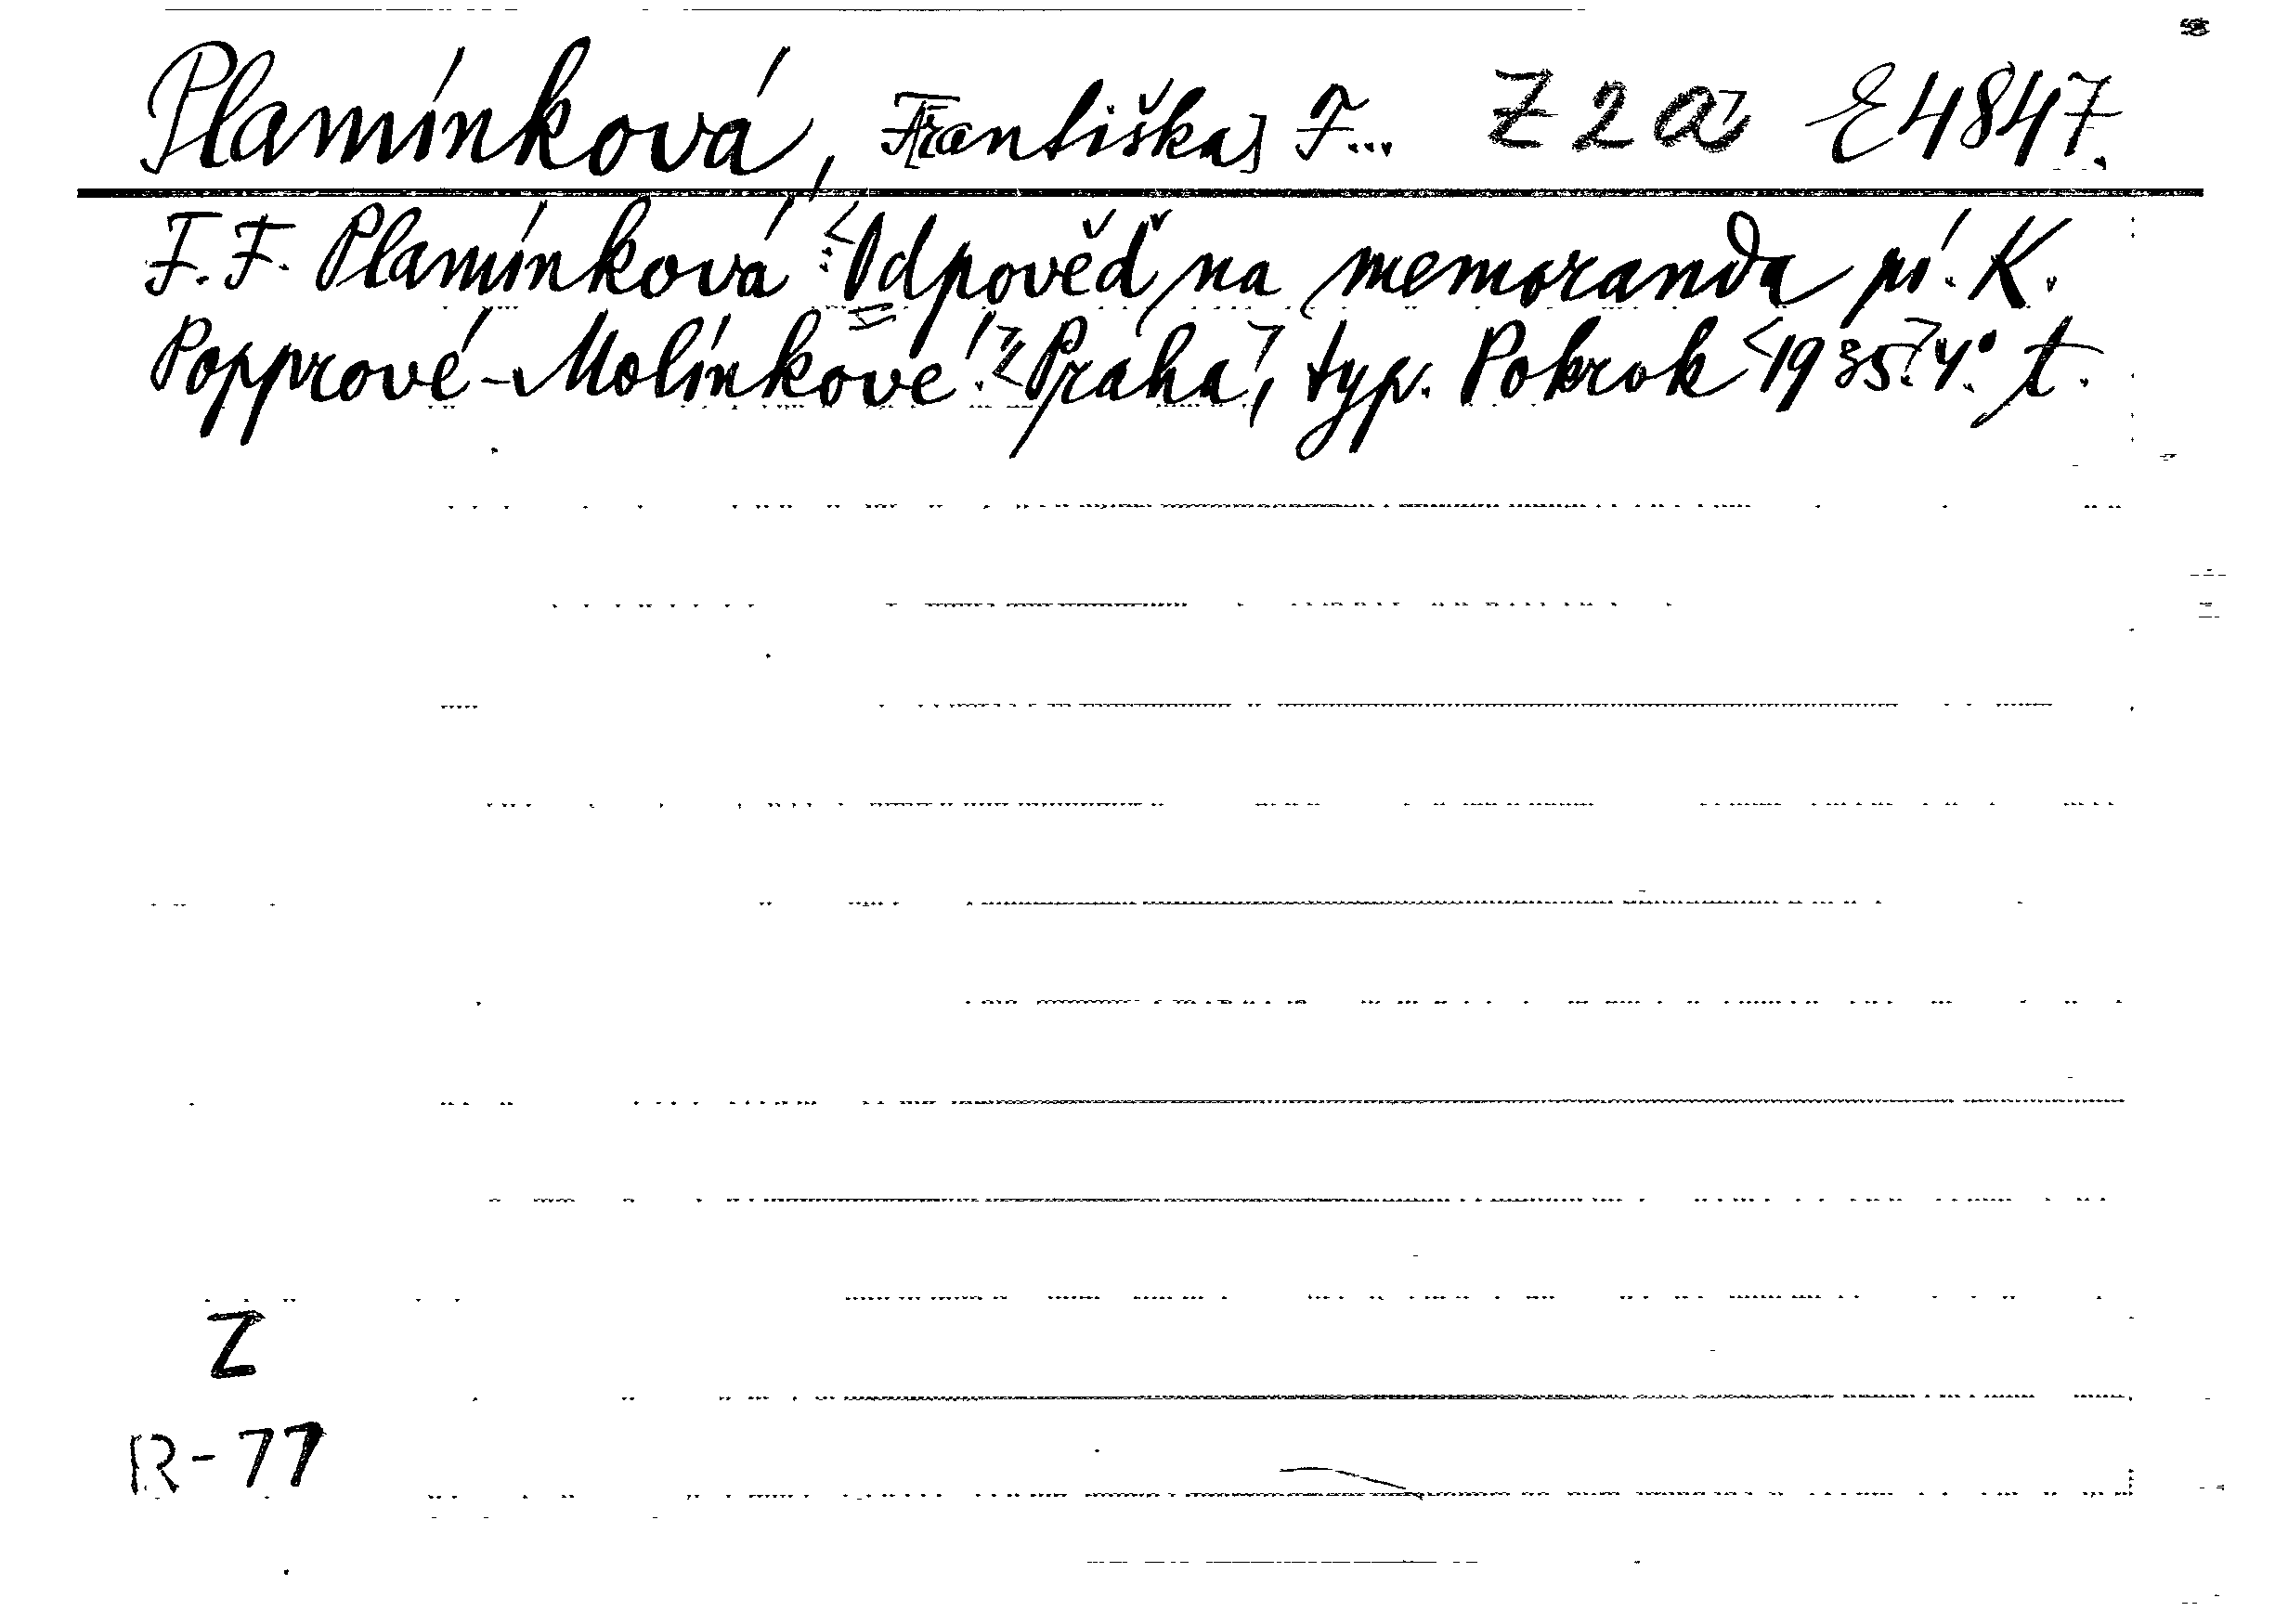 Plamínková, F[rantiška] F... Z 2 a E 4847.
F. F. Plamínková: <Odpověď na memoranda pí. K.
Popprové-Molínkové.> <Praha>, typ. Pokrok <1935>. 4°. t.
Z
R-77